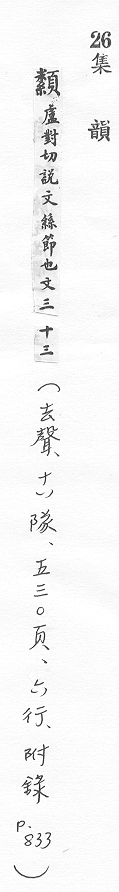 26集韻
纇盧對切說文絲節也文三十三(去聲、十八隊、五三〇頁、六行、附錄P.833)